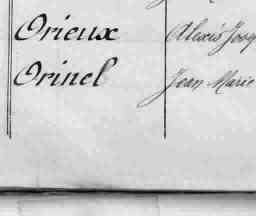 Orieux Alexis Josep
Orinel Jean Marie